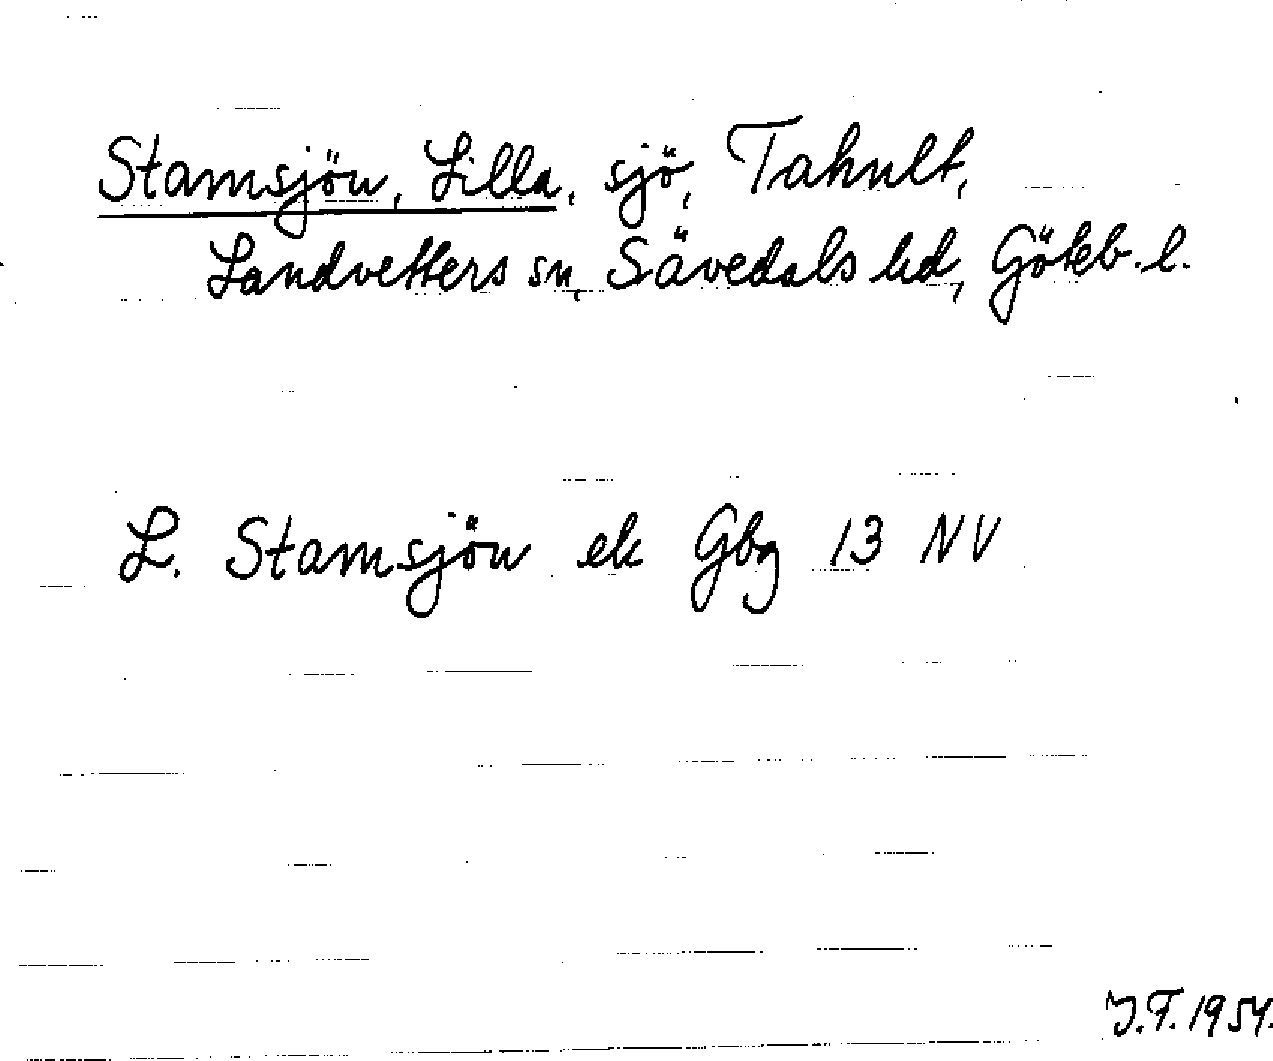 Stamsjön, Lilla, sjö, Tahult,
Landvetters sn, Sävedals hd, Göteb. l.
L. Stamsjön ek Gbg 13 NV
J.F. 1954.